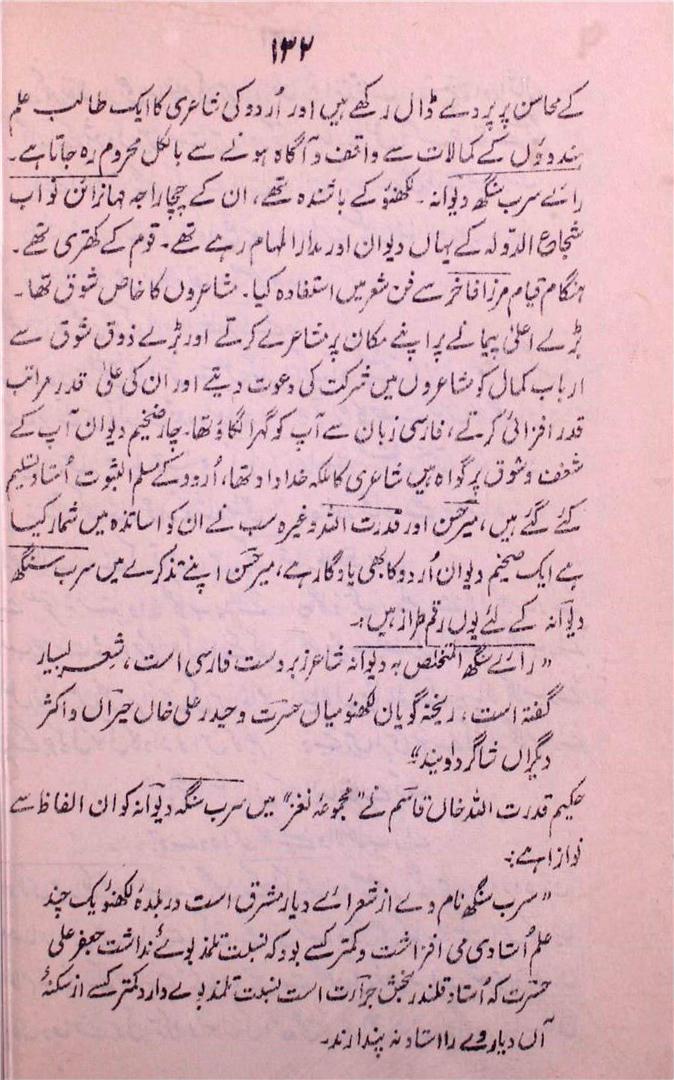 ۱۳۲
کے محاسن پر پردے ڈال رکھے ہیں اور اُردو کی شاعری کا ایک طالب علم
ہندوؤں کے کمالات سے واقف و آگاہ ہونے سے بالکل محروم رہ جاتا ہے۔
رائے سرب سنگھ دیوانہ۔ لکھنؤ کے باشندہ تھے، ان کے چچا راجہ مہانرائن نواب
شجاع الدولہ کے یہاں دیوان اور مدارالمہام رہے تھے۔ قوم کے کھتری تھے۔
ہنگام قیام مرزا فاخر سے فن شعر میں استفادہ کیا۔ مشاعروں کا خاص شوق تھا۔
بڑے اعلیٰ پیمانے پر اپنے مکان پر مشاعرے کرتے اور بڑے ذوق شوق سے
ارباب کمال کو مشاعروں میں شرکت کی دعوت دیتے اور ان کی علیٰ قدر مراتب
قدر افزائی کرتے، فارسی زبان سے آپ کو گہرا لگاؤ تھا۔ چار ضخیم دیوان آپ کے
شغف و شوق پر گواہ ہیں شاعری کا ملکہ خداداد تھا، اُردو کے مسلم الثبوت اُستاد تسلیم
کئے گئے ہیں، میر حسن اور قدرت اللہ وغیرہ سب نے ان کو اساتذہ میں شمار کیا
ہے ایک ضخیم دیوان اُردو کا بھی یادگار ہے، میر حسن اپنے تذکرے میں سرب سنگھ
دیوانہ کے لئے یوں رقم طراز ہیں:۔
”رائے سنگھ المتخلص بہ دیوانہ شاعر زبردست فارسی است، شعر بسیار
گفتہ است، ریختہ گویان لکھنؤ میاں حسرت و حیدر علی خاں حیراں و اکثر
دیگراں شاگرد اویند“
حکیم قدرت اللہ خاں قاسم نے ”مجموعۂ نغز“ میں سرب سنگھ دیوانہ کو ان الفاظ سے
نوازا ہے:۔
”سرب سنگھ نام وے از شعرائے دیار مشرق است در بلدۂ لکھنؤ یک چند
علم اُستادی می افراشت و کمتر کسے بود کہ نسبت تلمذ بوئے نداشت جعفر علی
حسرت کہ اُستاد قلندر بخش جرأت است نسبت تلمذ بوے دارد کمتر کسے از سکنۂ
آں دیار وے را استاد نہ پندارند۔